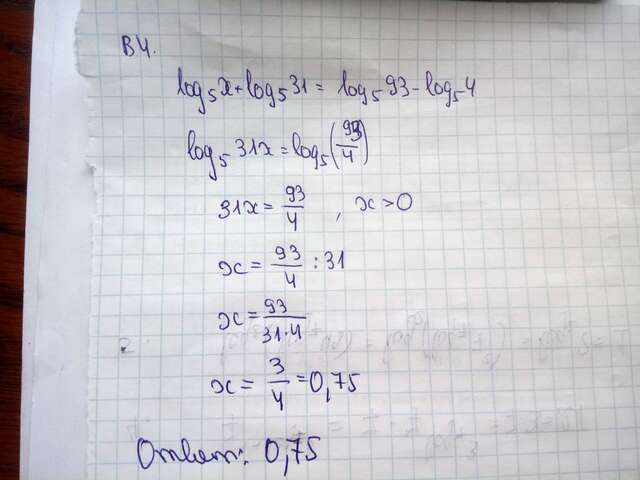 В4.
log₅x + log₅31 = log₅93 - log₅4
log₅31x = log₅(93/4)
31x = 93/4 , x>0
x = 93/4 : 31
x = 93/31·4
x = 3/4 = 0,75
Ответ: 0,75